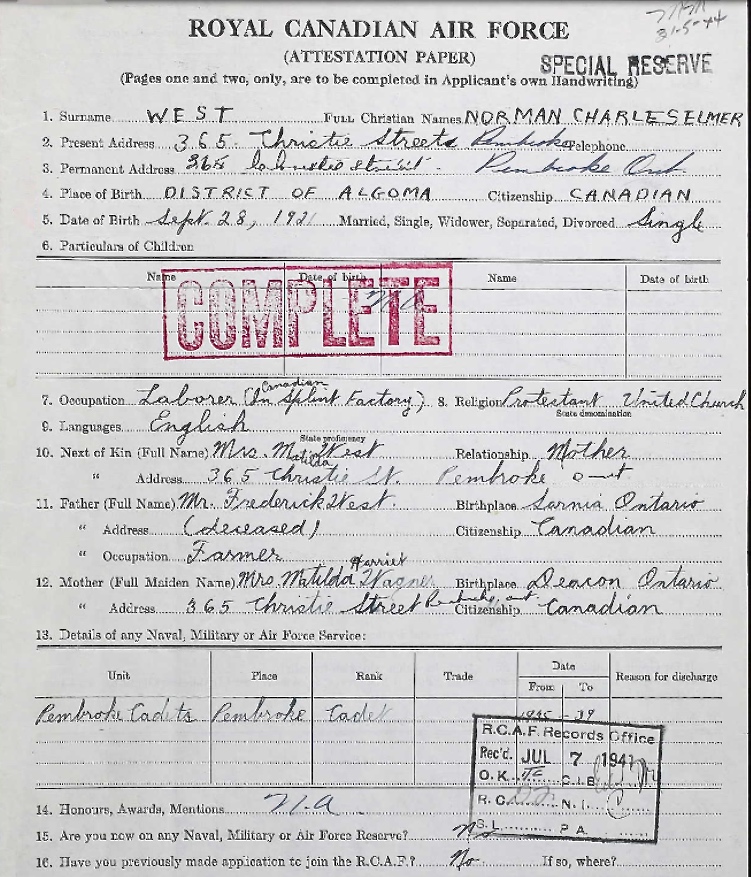 31-5-44
ROYAL CANADIAN AIR FORCE
(ATTESTATION PAPER)
SPECIAL RESERVE
(Pages one and two, only, are to be completed in Applicant's own Handwriting)
1. Surname WEST Full Christian Names NORMAN CHARLES ELMER
2. Present Address 365 Christie Streets Pembroke Telephone
3. Permanent Address 365 Pembroke Ont.
4. Place of Birth DISTRICT OF ALGOMA Citizenship CANADIAN
5. Date of Birth Sept. 28, 1921 Married, Single, Widower, Separated, Divorced Single
6. Particulars of Children
Name Date of birth Name Date of birth
N.A.
COMPLETE
7. Occupation Laborer (In Canadian Splint Factory) 8. Religion Protestant United Church
State denomination
9. Languages English
State proficiency
10. Next of Kin (Full Name) Mrs. Matilda West Relationship Mother
" Address 365 Christie St. Pembroke Ont
11. Father (Full Name) Mr. Frederick West. Birthplace Sarnia Ontario
" Address (deceased) Citizenship Canadian
" Occupation Farmer
12. Mother (Full Maiden Name) Mrs. Matilda Harriet Wagner Birthplace Deacon Ontario
" Address 365 Christie Street Citizenship Canadian
13. Details of any Naval, Military or Air Force Service:
Unit Place Rank Trade Date From To Reason for discharge
Pembroke Cadets Pembroke Cadet - 39
R.C.A.F. Records Office
Rec'd. JUL 7 1941
O.K. C.I.B.
R.C. N.I.
S.I. P.A.
14. Honours, Awards, Mentions N.A
15. Are you now on any Naval, Military or Air Force Reserve? No
16. Have you previously made application to join the R.C.A.F.? No If so, where?